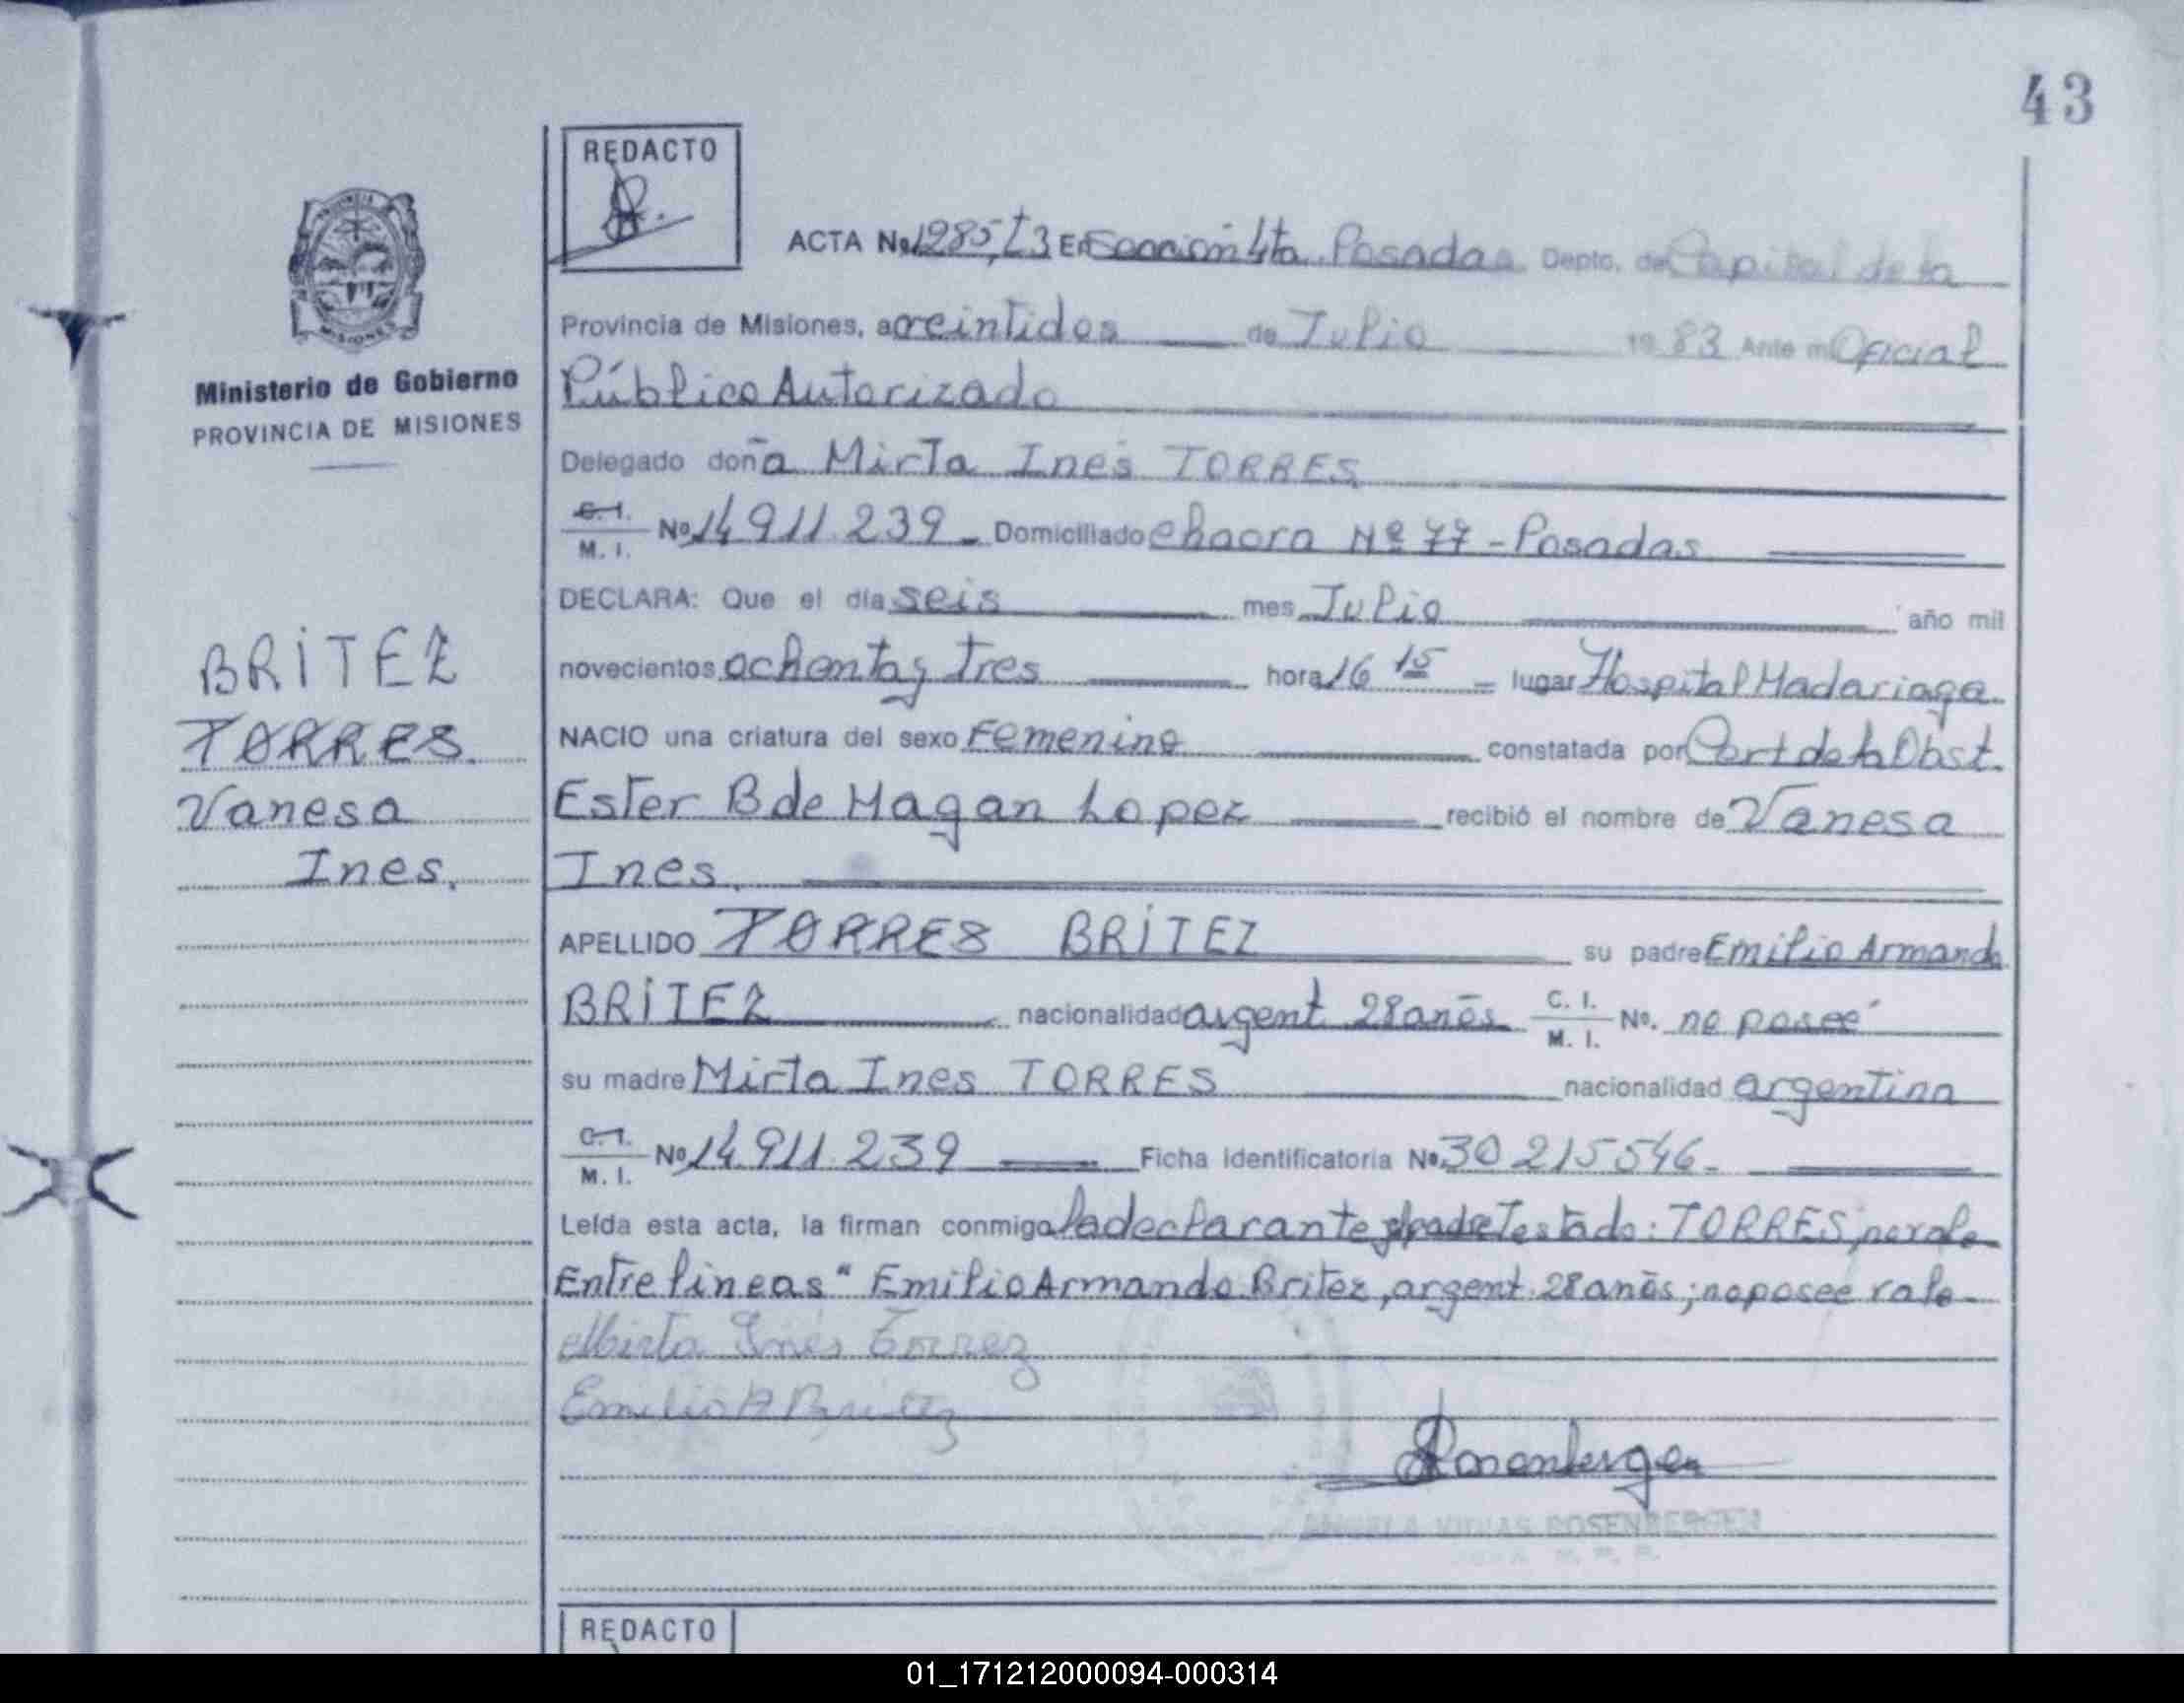 43
REDACTO
ACTA No. 1285, T3 En Sección 4ta. Posadas Depto. de Capital de la
Provincia de Misiones, a veintidos de Julio 1983 Ante mi Oficial
Público Autorizado
Ministerio de Gobierno
PROVINCIA DE MISIONES
Delegado doña Mirta Inés TORRES
C. I. M. I. No 14.911.239 - Domiciliado chacra Nº 77 - Posadas
DECLARA: Que el día seis mes Julio año mil
novecientos ochenta y tres hora 16 15 lugar Hospital Madariaga
BRITEZ
TORRES.
Vanesa
Ines.
NACIO una criatura del sexo Femenino constatada por Cert de la Obst.
Ester B de Magan Lopez recibió el nombre de Vanesa
Ines.
APELLIDO TORRES BRITEZ su padre Emilio Armando
BRITEZ nacionalidad argent 28 años C. I. M. I. No. no posee
su madre Mirta Ines TORRES nacionalidad argentina
C. I. M. I. No 14.911.239 Ficha identificatoria No. 30 215546.
Leída esta acta, la firman conmigo la declarante y el padre Testado: TORRES, no vale
Entre lineas " Emilio Armando Britez, argent. 28 años; no posee vale
Mirta Inés Torrez
Emilio A Britez
Rosenbergen
ANGELA VIÑAS ROSENBERGEN
REDACTO
01_171212000094-000314